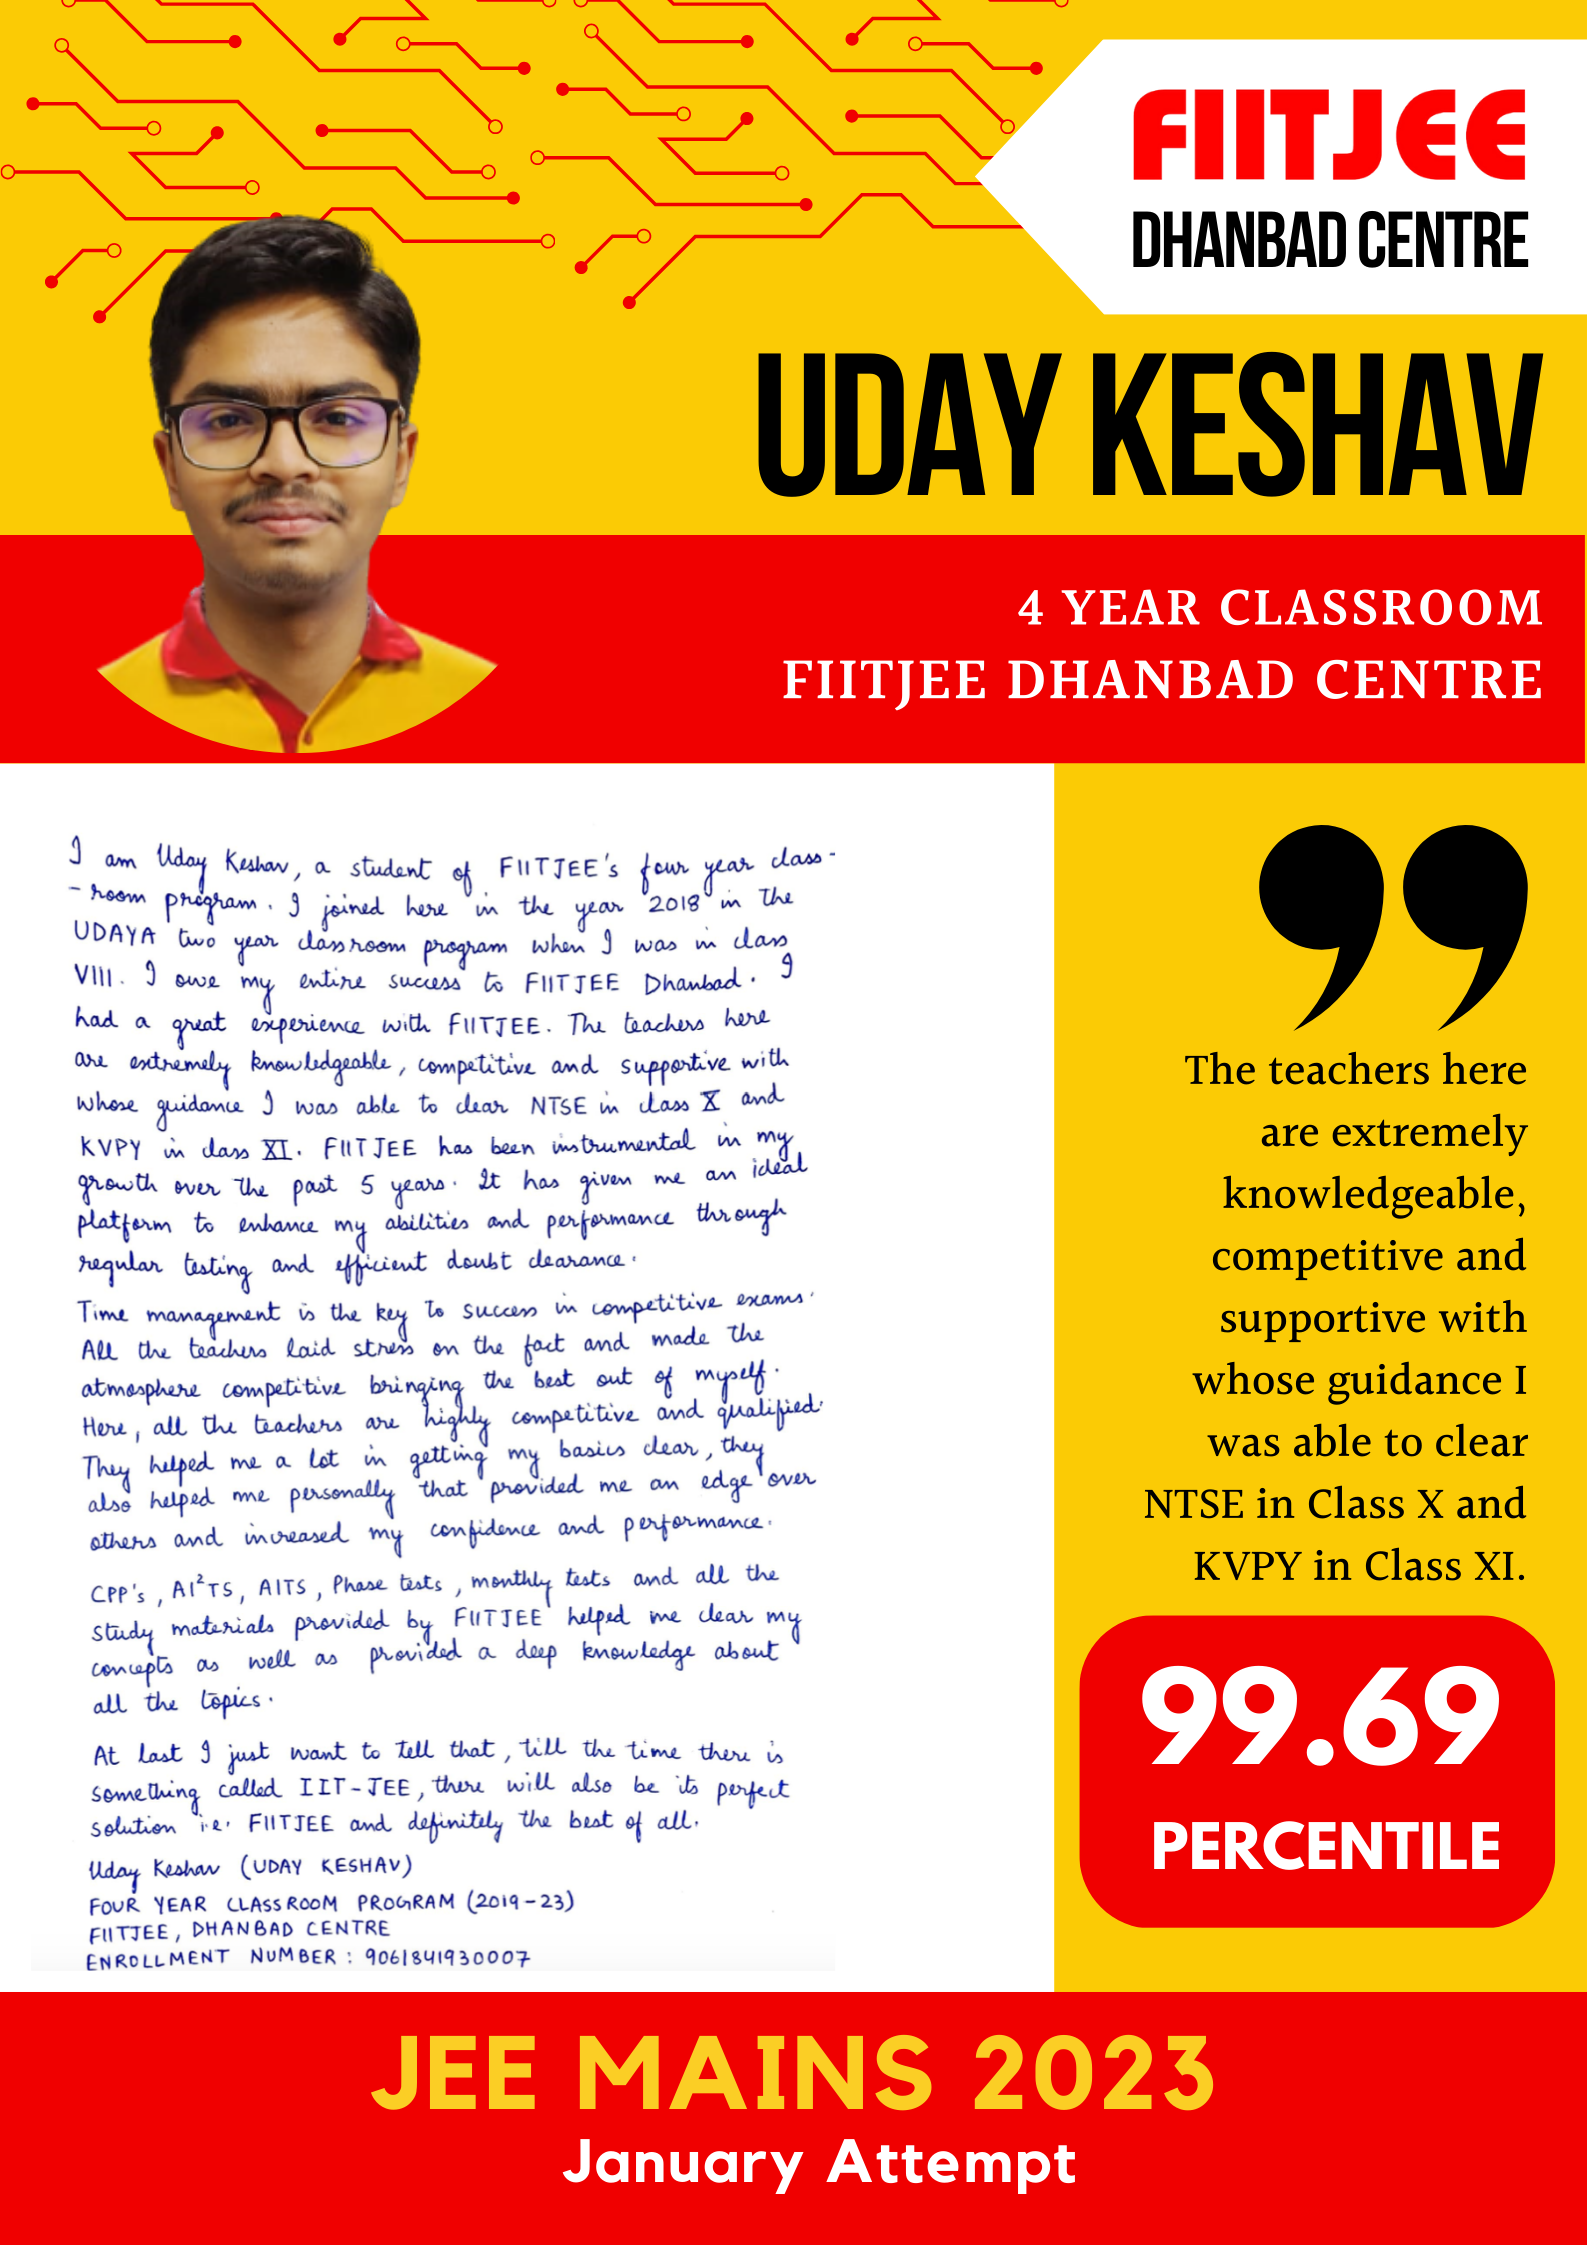 FIITJEE
DHANBAD CENTRE
UDAY KESHAV
4 YEAR CLASSROOM
FIITJEE DHANBAD CENTRE
I am Uday Keshav, a student of FIITJEE's four year class-
-room program. I joined here in the year 2018 in the
UDAYA two year classroom program when I was in class
VIII. I owe my entire success to FIITJEE Dhanbad. I
had a great experience with FIITJEE. The teachers here
are extremely knowledgeable, competitive and supportive with
whose guidance I was able to clear NTSE in class X and
KVPY in class XI. FIITJEE has been instrumental in my
growth over the past 5 years. It has given me an ideal
platform to enhance my abilities and performance through
regular testing and efficient doubt clearance.
Time management is the key to success in competitive exams.
All the teachers laid stress on the fact and made the
atmosphere competitive bringing the best out of myself.
Here, all the teachers are highly competitive and qualified.
They helped me a lot in getting my basics clear, they
also helped me personally that provided me an edge over
others and increased my confidence and performance.
CPP's, AI²TS, AITS, Phase tests, monthly tests and all the
study materials provided by FIITJEE helped me clear my
concepts as well as provided a deep knowledge about
all the topics.
At last I just want to tell that, till the time there is
something called IIT-JEE, there will also be its perfect
solution i.e. FIITJEE and definitely the best of all.
Uday Keshav (UDAY KESHAV)
FOUR YEAR CLASSROOM PROGRAM (2019-23)
FIITJEE, DHANBAD CENTRE
ENROLLMENT NUMBER : 9061841930007
”
The teachers here
are extremely
knowledgeable,
competitive and
supportive with
whose guidance I
was able to clear
NTSE in Class X and
KVPY in Class XI.
99.69
PERCENTILE
JEE MAINS 2023
January Attempt